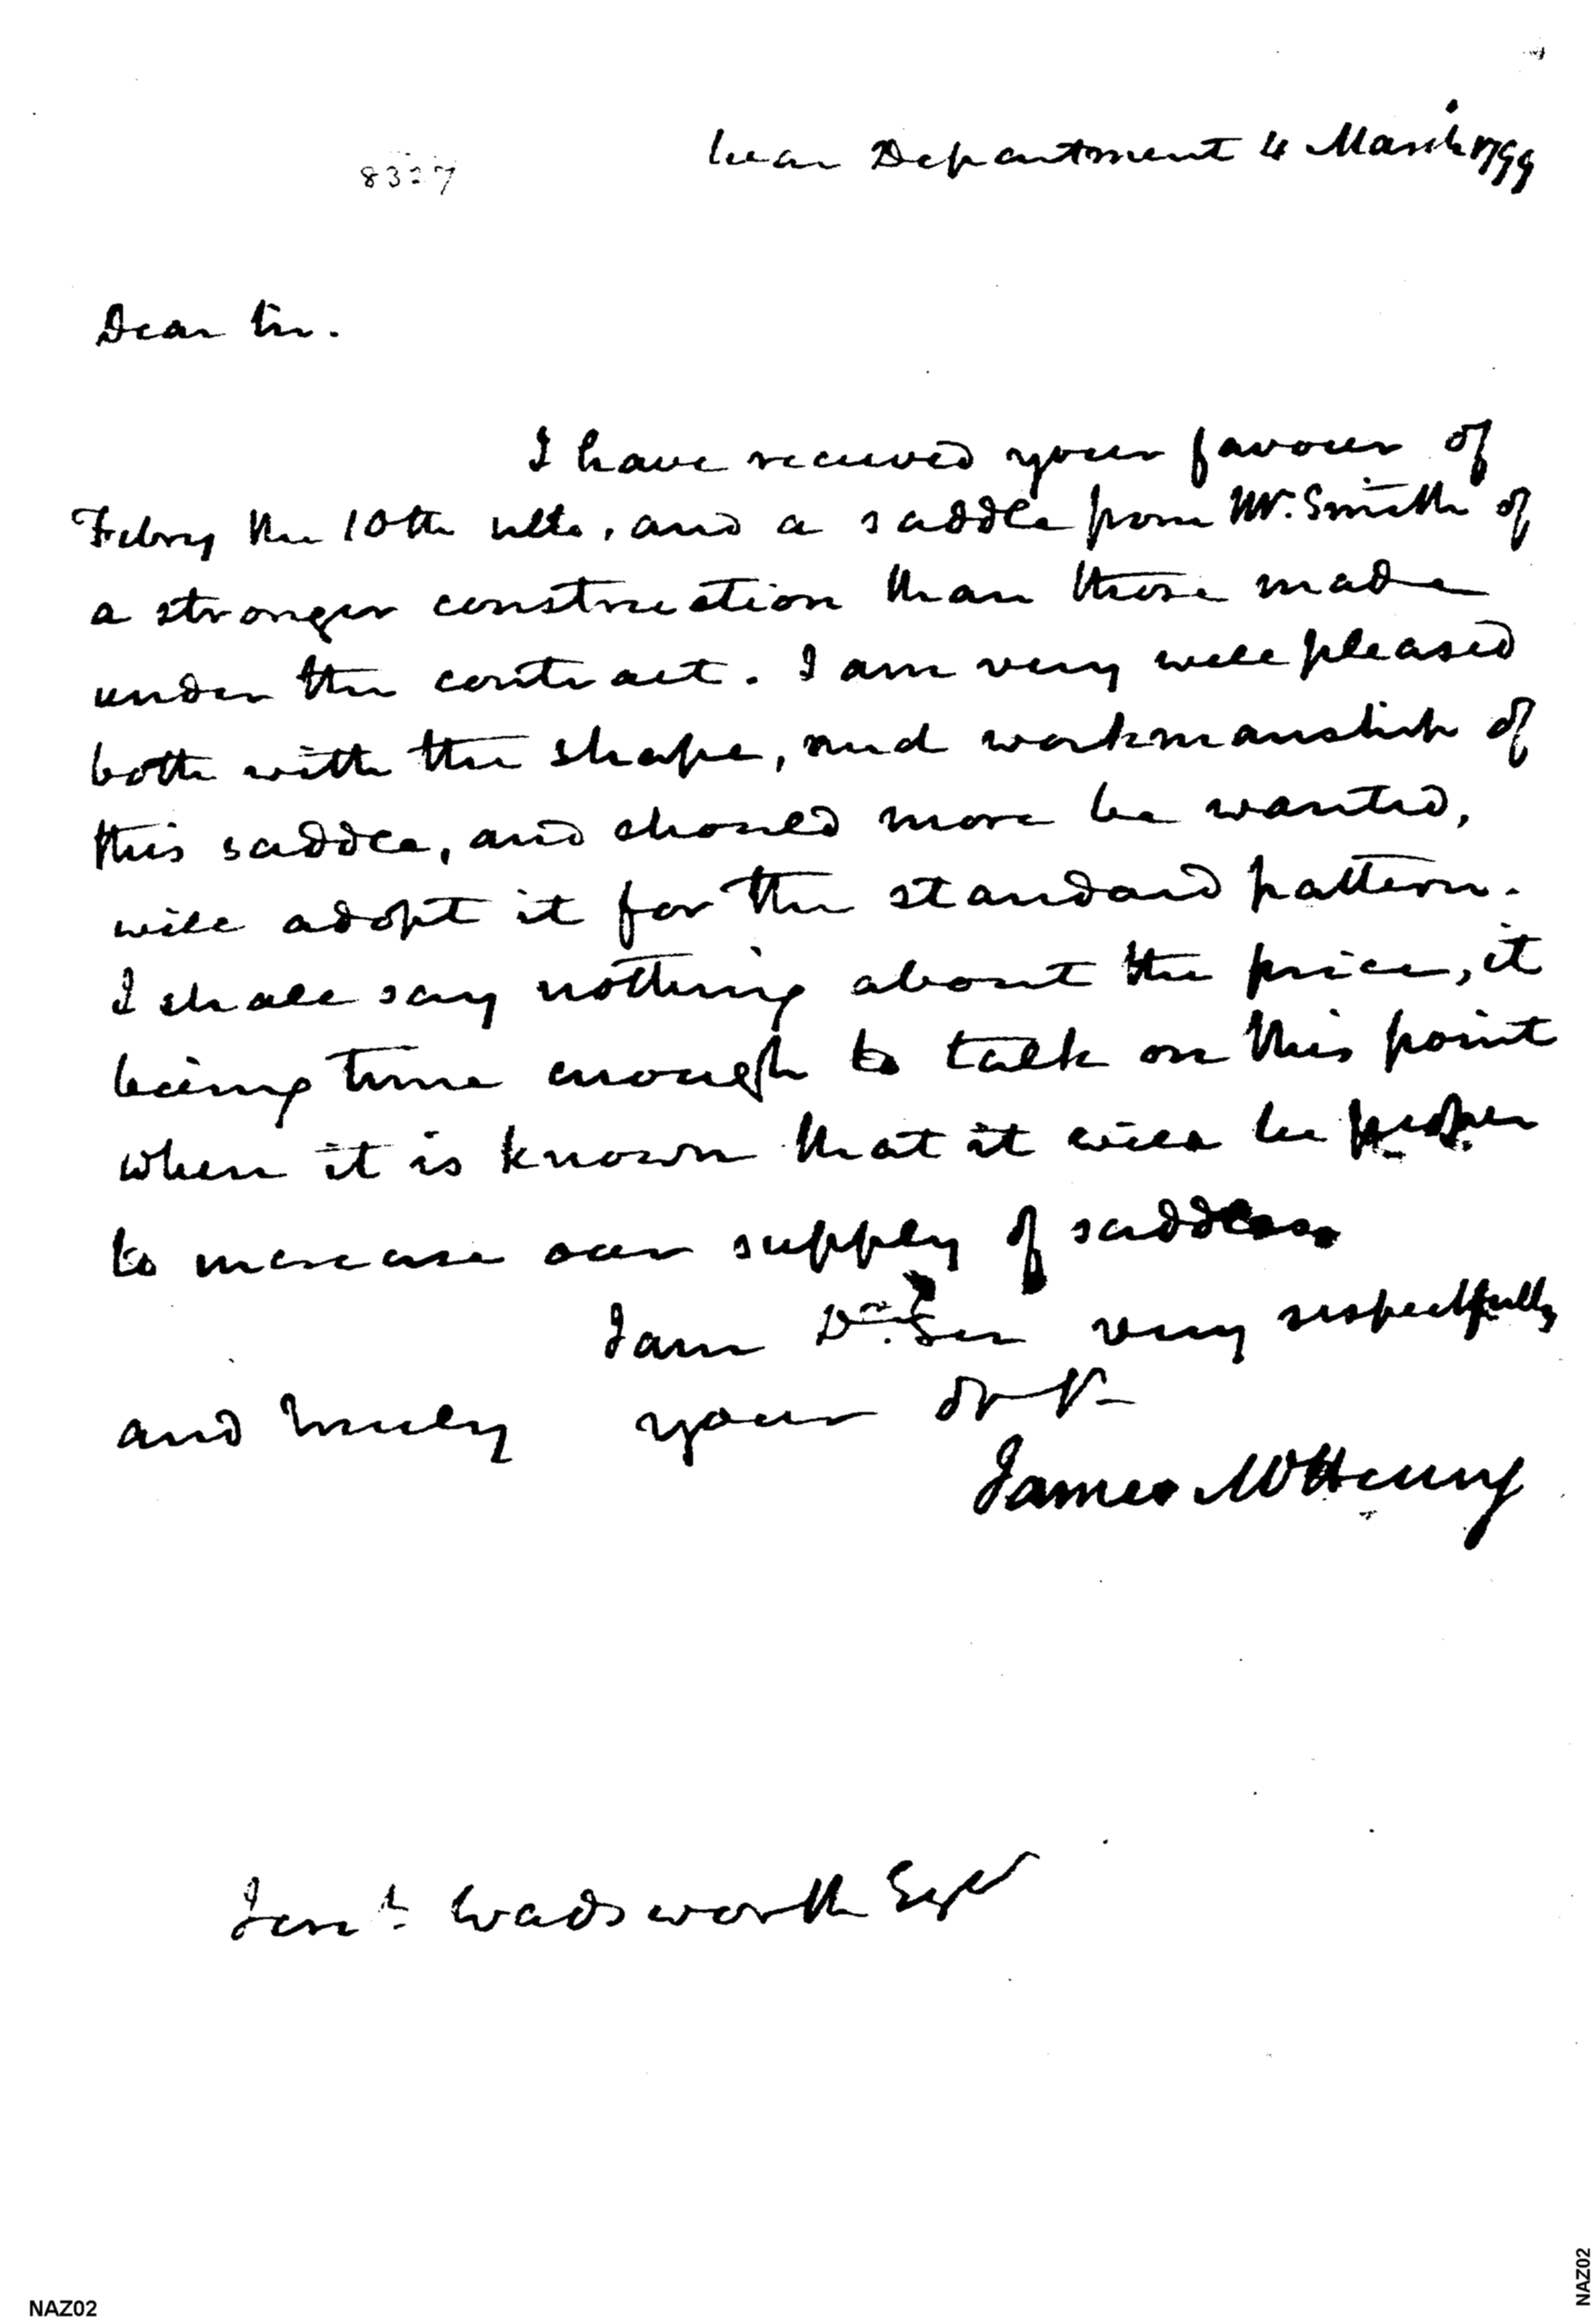 War Department 4 March 1799
Dear Sir.
I have received your favour of
Febry the 10th ulto, and a saddle from Mr. Smith of
a stronger construction than those made
under the contract. I am very well pleased
both with the shape, and workmanship of
this saddle, and should more be wanted,
will adopt it for the standard pattern.
I shall say nothing about the price, it
being time enough to talk on this point
when it is known that it will be proper
to increase our supply of saddles
I am Dr. Sir very respectfully
and truly your
James McHenry
Wadsworth Esqr
NAZ02
NAZ02